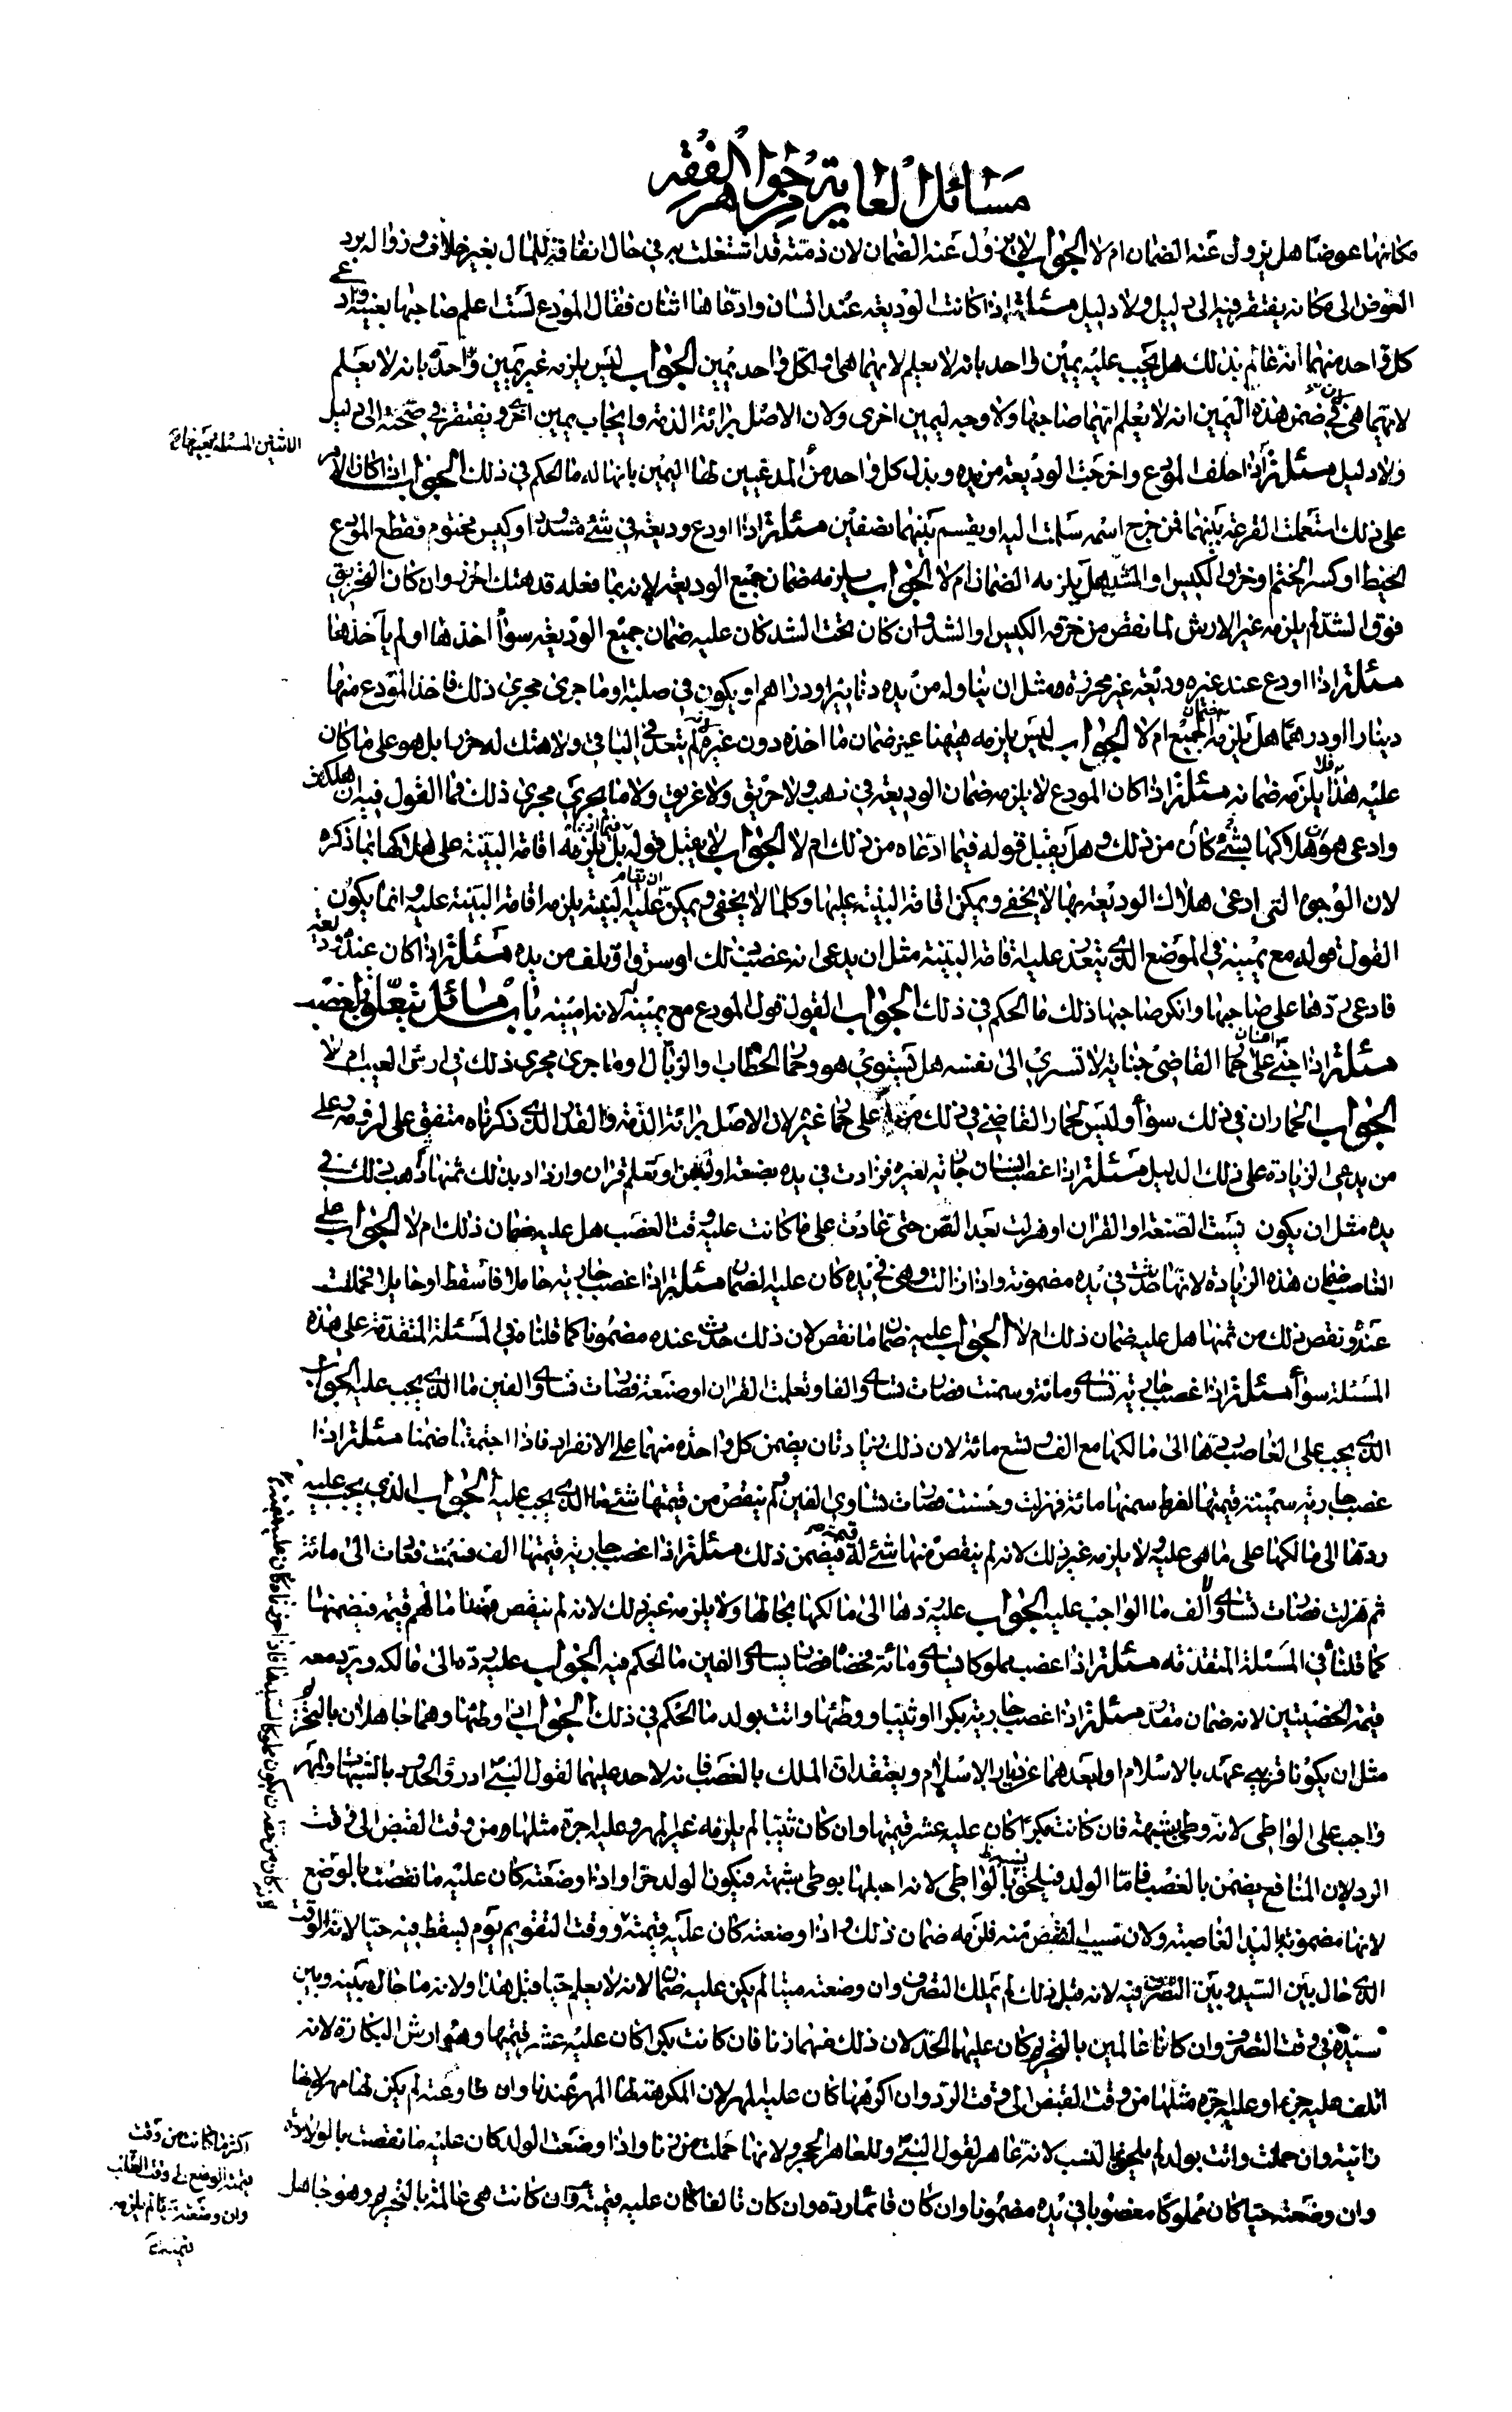 مسائل العارية من جواهر الفقه
مكانها عوضا هل يزول عنه الضمان ام لا الجواب لا يزول عنه الضمان لان ذمته قد اشتغلت به في حال انفاقه للمال بغير خلاف وزواله برد
العوض الى مكانه يفتقر فيه الى دليل ولا دليل مسئلة اذا كانت الوديعة عند انسان وادعاها اثنان فقال المودع لست اعلم صاحبها بعينه وادعى
كل واحد منهما انه عالم بذلك هل يجب عليه يمين واحد بانه لا يعلم لايهما هي او لكل واحد يمين الجواب ليس يلزمه غير يمين واحدة بانه لا يعلم
لايهما هي لان في ضمن هذه اليمين انه لا يعلم ايهما صاحبها ولا وجه ليمين اخرى ولان الاصل برائة الذمة وايجاب يمين اخرى يفتقر في صحته الى دليل
ولا دليل مسئلة اذا حلف المودع واخرجت الوديعة من يده وبذل كل واحد من المدعيين لها اليمين بانها له ما الحكم في ذلك الجواب اذا كان الامر
على ذلك استعملت القرعة بينهما فمن خرج اسمه سلمت اليه او يقسم بينهما نصفين مسئلة اذا اودع وديعة في شئ مشدود او كيس مختوم فقطع المودع
الخيط او كسر الختم او خرق الكيس او المشد هل يلزمه الضمان ام لا الجواب يلزمه ضمان جميع الوديعة لانه بما فعله قد هتك الحرز وان كان الخريق
فوق الشد لم يلزمه غير الارش لما نقص من خرقه الكيس او الشد وان كان تحت الشد كان عليه ضمان جميع الوديعة سواء اخذها او لم يأخذها
مسئلة اذا اودع عند غيره وديعة غير محرزة مثل ان يناوله من يده دنانير او دراهم او يكون في صلبه او ما جرى مجرى ذلك فاخذ المودع منها
دينارا او درهما هل يلزمه ضمان الجميع ام لا الجواب ليس يلزمه هيهنا غير ضمان ما اخذه دون غيره لانه لم يتعد في الباقي ولا هتك له حرزا بل هو على ما كان
عليه هذا فلا يلزمه ضمانه مسئلة اذا كان المودع لا يلزمه ضمان الوديعة في نهب ولا حريق ولا غريق ولا ما يجري مجرى ذلك فما القول فيه ان هلكت
وادعى هو هلاكها بشئ كان من ذلك وهل يقبل قوله فيما ادعاه من ذلك ام لا الجواب لا يقبل قوله بل يلزمه اقامة البينة على هلاكها بما ذكره
لان الوجوه التي ادعى هلاك الوديعة بها لا يخفى ويمكن اقامة البينة عليها وكلما لا يخفى ويمكن ان تقام عليه البينة يلزمه اقامة البينة عليه وانما يكون
القول قوله مع يمينه في الموضع الذي يتعذر عليه اقامة البينة مثل ان يدعى انه غصب ذلك او سرق او تلف من يده مسئلة اذا كان عنده وديعة
فادعى ردها على صاحبها وانكر صاحبها ذلك ما الحكم في ذلك الجواب القول قول المودع مع يمينه لانه امينه باب مسائل تتعلق بالغصب
مسئلة اذا جنى انسان على حمار القاضي جناية لا تسري الى نفسه هل يستوي هو وحمار الحطاب والزبال وما جرى مجرى ذلك في ارش العيب ام لا
الجواب الحماران في ذلك سواء وليس لحمار القاضي في ذلك مزية على حمار غيره لان الاصل برائة الذمة والقدر الذي ذكرناه متفق على لزومه وعلى
من يدعى الزيادة على ذلك الدليل مسئلة اذا غصب انسان جارية لغيره فزادت في يده بصنعة او سمن او تعلم قران وازداد بذلك ثمنها ثم ذهب ذلك في
يده مثل ان يكون نسيت الصنعة او القران او هزلت بعد السمن حتى عادت على ما كانت عليه وقت الغصب هل عليه ضمان ذلك ام لا الجواب على
الغاصب ضمان هذه الزيادة لانها حدثت في يده مضمونة واذا زالت وهي في يده كان عليه الضمان مسئلة اذا غصب جارية حاملا فاسقطت او حايلا فحملت
عنده ونقص ذلك من ثمنها هل عليه ضمان ذلك ام لا الجواب عليه ضمان ما نقص لان ذلك حدث عنده مضمونا كما قلناه في المسئلة المتقدمة على هذه
المسئلة سواء مسئلة اذا غصب جارية تساوى مائة وسمنت فصارت تساوى الفا وتعلمت القران او صنعة فصارت تساوى الفين ما الذي يجب عليه الجواب
الذي يجب على الغاصب ردها الى مالكها مع الف وتسع مائة لان ذلك زيادتان يضمن كل واحدة منهما على الانفراد فاذا اجتمعتا ضمنا مسئلة اذا
غصب جارية سمينة قيمتها لفرط سمنها مائة فهزلت وحسنت فصارت تساوى الفين ولم ينقص من قيمتها شئ ما الذي يجب عليه الجواب الذي يجب عليه
ردها الى مالكها على ما هي عليه ولا يلزمه غير ذلك لانه لم ينقص منها شئ له قيمة فيضمن ذلك مسئلة اذا غصب جارية قيمتها الف فسمنت فعادت الى مائة
ثم هزلت فصارت تساوى الف ما الواجب عليه الجواب عليه ردها الى مالكها بحالها ولا يلزمه غير ذلك لانه لم ينقص منها ما لهم قيمة فيضمنها
كما قلناه في المسئلة المتقدمة مسئلة اذا غصب مملوكا يساوى مائة فخصاه فصار يساوى الفين ما الحكم فيه الجواب عليه رده الى مالكه ويرد معه
قيمة الخصيتين لانه ضمان مقدر مسئلة اذا غصب جارية بكرا او ثيبا ووطئها واتت بولد ما الحكم في ذلك الجواب اذا وطئها وهما جاهلان بالتحريم
مثل ان يكونا قريبى عهد بالاسلام او لبعدهما عن ديار الاسلام ويعتقد ان الملك بالغصب فانه لا حد عليهما لقول النبي ادرؤا الحدود بالشبهات والمهر
واجب على الواطى لانه وطى بشبهة فان كانت بكرا كان عليه عشر قيمتها وان كان ثيبا لم يلزمه غير المهر وعليه اجرة مثلها من وقت القبض الى وقت
الرد لان المنافع يضمن بالغصب فاما الولد فيلحق نسبه بالواطى لانه احبلها بوطى بشبهة فيكون الولد حرا واذا وضعته كان عليه ما نقصت بالوضع
لانها مضمونة باليد الغاصبة ولان سبب النقص منه فلزمه ضمان ذلك واذا وضعته كان عليه قيمته ووقت التقويم يوم يسقط فيه حيا لانه الوقت
الذي حال بين السيد وبين التصرف فيه لانه قبل ذلك لم يملك التصرف وان وضعته ميتا لم يكن عليه ضمان لانه لا يعلم حيا قبل هذا ولانه ما حال بينه وبين
سيده في وقت التصرف وان كانا عالمين بالتحريم كان عليهما الحد لان ذلك منهما زنا فان كانت بكرا كان عليه عشر قيمتها وهو ارش البكارة لانه
اتلف عليه جزءا وعليه اجرة مثلها من وقت القبض الى وقت الرد وان اكرهها كان عليه المهر لان المكرهة لها المهر عندنا وان طاوعته لم يكن لها مهر لانها
زانية وان حملت واتت بولد لم يلحق النسب لانه عاهر لقول النبي وللعاهر الحجر ولانها حملت من زنا واذا وضعت الولد كان عليه ما نقصت بالولادة
وان وضعته حيا كان مملوكا مغصوبا في يده مضمونا وان كان قائما رده وان كان تالفا كان عليه قيمته وان كانت هي عالمة بالتحريم وهو جاهل
اكثر ما كانت من وقت
قيمته الوضع الى وقت التلف
وان وضعته ميتا لم يلزمه
قيمته